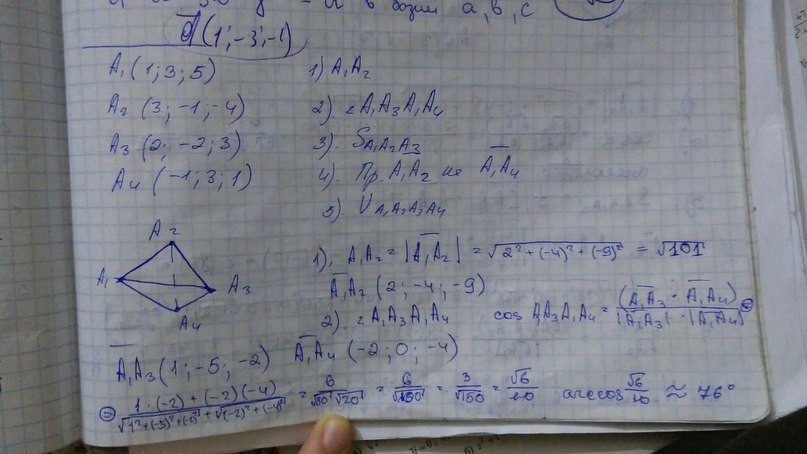 в базии a, b, c
d (1; -3; -1)
A₁ (1; 3; 5)
A₂ (3; -1; -4)
A₃ (2; -2; 3)
A₄ (-1; 3; 1)
1) A₁A₂
2). ∠A₁A₃A₁A₄
3). SA₁A₂A₃
4). Пр. A₁A₂ на A₁A₄
5) VA₁A₂A₃A₄
A₂
A₁
A₃
A₄
1). A₁A₂ = |A₁A₂| = √2² + (-4)² + (-9)² = √101
A₁A₂ (2; -4; -9)
2) ∠A₁A₃A₁A₄ cos A₁A₃A₁A₄ = (A₁A₃ · A₁A₄) / |A₁A₃| · |A₁A₄| =
A₁A₃ (1; -5; -2) A₁A₄ (-2; 0; -4)
= 1·(-2) + (-2)(-4) / √1² + (-5)² + (-2)² + √(-2)² + (-4)² = 6/√30 √20 = 6/√600 = 3/√150 = √6/10 arccos √6/10 ≈ 76°